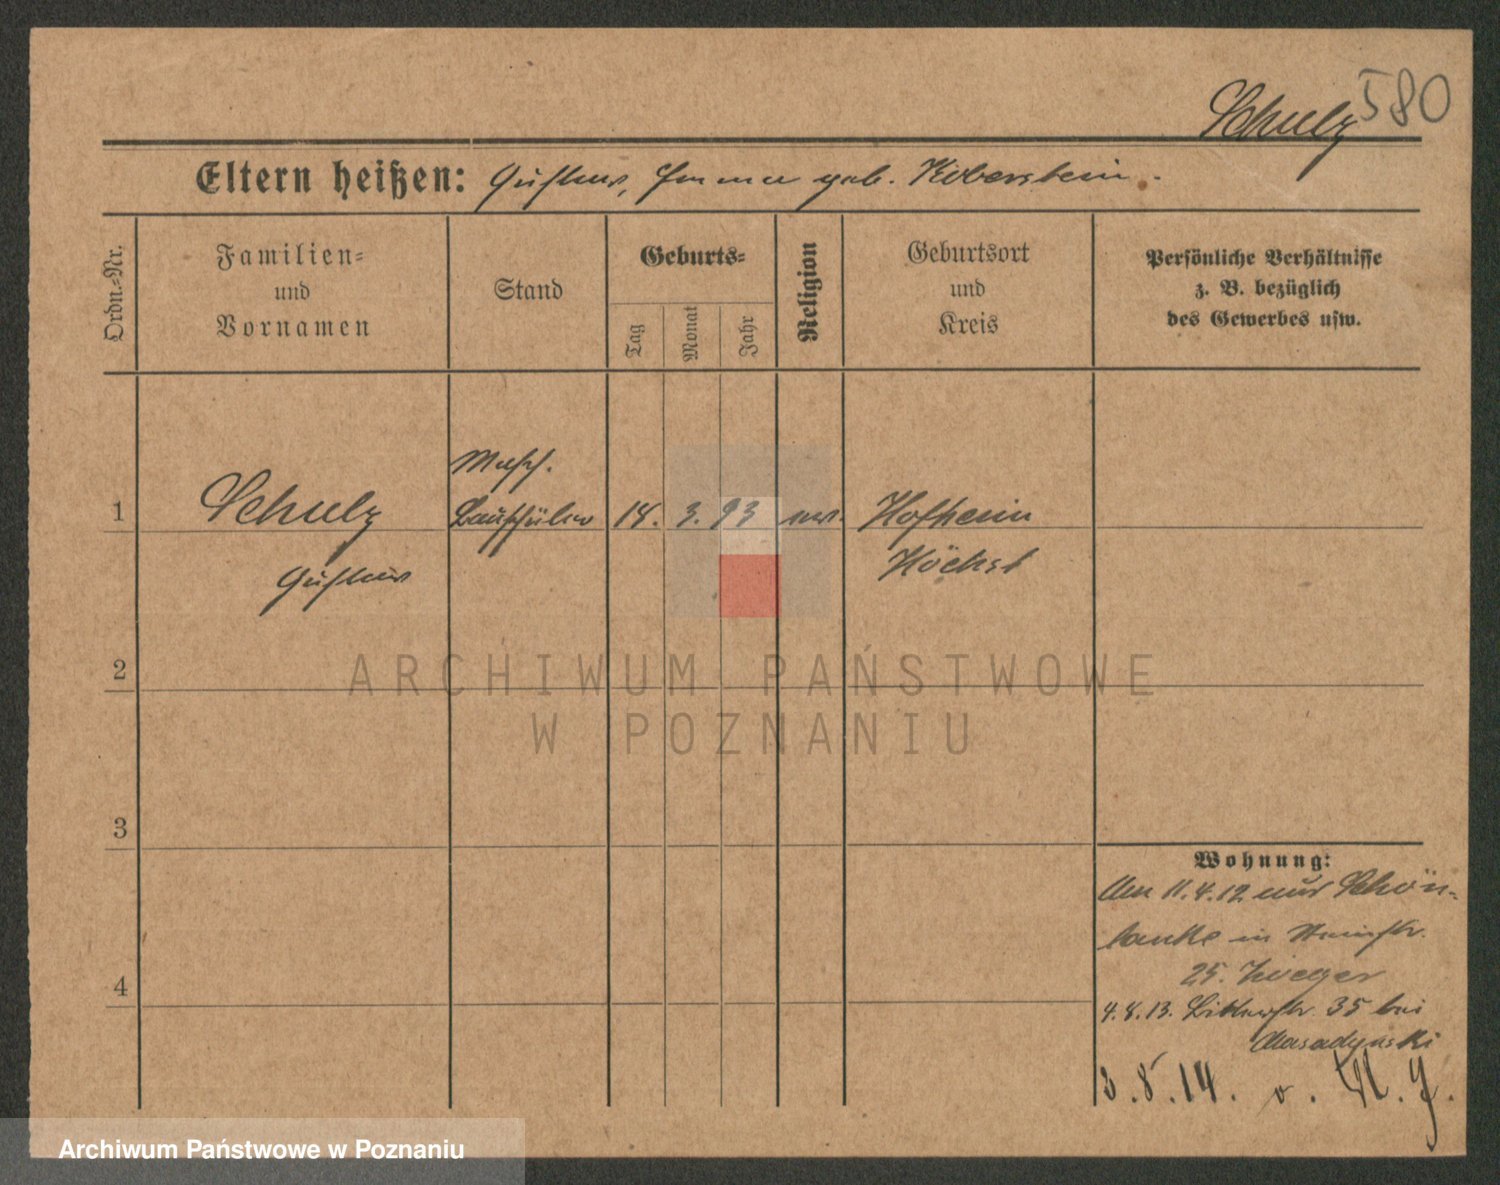 Schulz 580
Eltern heißen: Gustav, Emma geb. Koberstein.
Ordn.-Nr.
Familien-
und
Vornamen
Stand
Geburts-
Tag
Monat
Jahr
Religion
Geburtsort
und
Kreis
Persönliche Verhältnisse
z. B. bezüglich
des Gewerbes usw.
Masch.
1 Schulz Bauschüler 14. 3. 93 ev. Hofheim
Gustav Höchst
2
ARCHIWUM PAŃSTWOWE
W POZNANIU
3
Wohnung:
Am 11.4.12 aus Schön-
lanke in
25.
4
4.8.13. 35 bei
3.8.14. v. U. g.
Archiwum Państwowe w Poznaniu